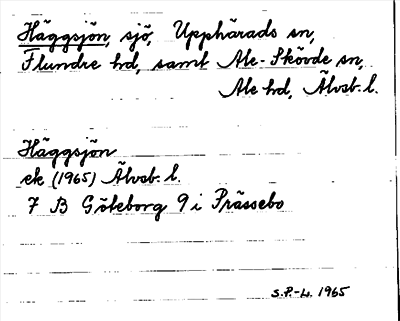 Häggsjön, sjö, Upphärads sn,
Flundre hd, samt Ale-Skövde sn,
Ale hd, Älvsb. l.
Häggsjön
ek (1965) Älvsb. l.
7 B Göteborg 9 i Prässebo
S.P.-L. 1965